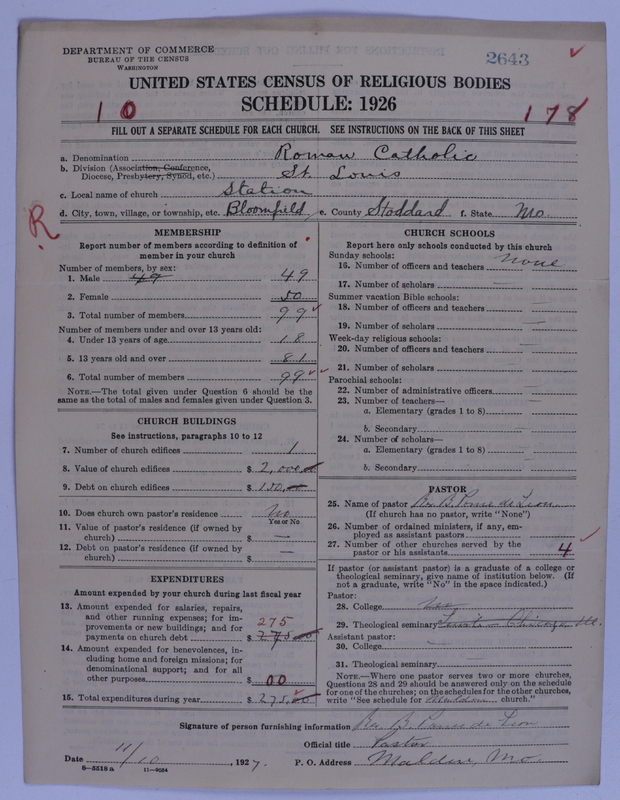 DEPARTMENT OF COMMERCE
BUREAU OF THE CENSUS
WASHINGTON
2643
UNITED STATES CENSUS OF RELIGIOUS BODIES
SCHEDULE: 1926
10
178
FILL OUT A SEPARATE SCHEDULE FOR EACH CHURCH. SEE INSTRUCTIONS ON THE BACK OF THIS SHEET
a. Denomination Roman Catholic
b. Division (Association, Conference, Diocese, Presbytery, Synod, etc.) St. Louis
c. Local name of church Station
d. City, town, village, or township, etc. Bloomfield e. County Stoddard f. State Mo.
R
MEMBERSHIP
Report number of members according to definition of member in your church
Number of members, by sex:
1. Male 49 49
2. Female 50
3. Total number of members 99
Number of members under and over 13 years old:
4. Under 13 years of age 18
5. 13 years old and over 81
6. Total number of members 99
NOTE.—The total given under Question 6 should be the same as the total of males and females given under Question 3.
CHURCH BUILDINGS
See instructions, paragraphs 10 to 12
7. Number of church edifices 1
8. Value of church edifices $ 2,000.00
9. Debt on church edifices $ 150.00
10. Does church own pastor's residence No
Yes or No
11. Value of pastor's residence (if owned by church) $ —
12. Debt on pastor's residence (if owned by church) $ —
EXPENDITURES
Amount expended by your church during last fiscal year
13. Amount expended for salaries, repairs, and other running expenses; for improvements or new buildings; and for payments on church debt $ 275 275.00
14. Amount expended for benevolences, including home and foreign missions; for denominational support; and for all other purposes $ 00
15. Total expenditures during year $ 275.00
CHURCH SCHOOLS
Report here only schools conducted by this church
Sunday schools:
16. Number of officers and teachers None
17. Number of scholars —
Summer vacation Bible schools:
18. Number of officers and teachers —
19. Number of scholars —
Week-day religious schools:
20. Number of officers and teachers —
21. Number of scholars —
Parochial schools:
22. Number of administrative officers —
23. Number of teachers—
a. Elementary (grades 1 to 8) —
b. Secondary —
24. Number of scholars—
a. Elementary (grades 1 to 8) —
b. Secondary —
PASTOR
25. Name of pastor Rev. B. Ponce de Leon
(If church has no pastor, write "None")
26. Number of ordained ministers, if any, employed as assistant pastors
27. Number of other churches served by the pastor or his assistants 4
If pastor (or assistant pastor) is a graduate of a college or theological seminary, give name of institution below. (If not a graduate, write "No" in the space indicated.)
Pastor:
28. College
29. Theological seminary Chicago Ill.
Assistant pastor:
30. College —
31. Theological seminary —
NOTE.—Where one pastor serves two or more churches, Questions 28 and 29 should be answered only on the schedule for one of the churches; on the schedules for the other churches, write "See schedule for church."
Signature of person furnishing information Rev. B. Ponce de Leon
Official title Pastor
Date 11/10, 1927. P. O. Address Malden, Mo.
8—5518 a 11—9024